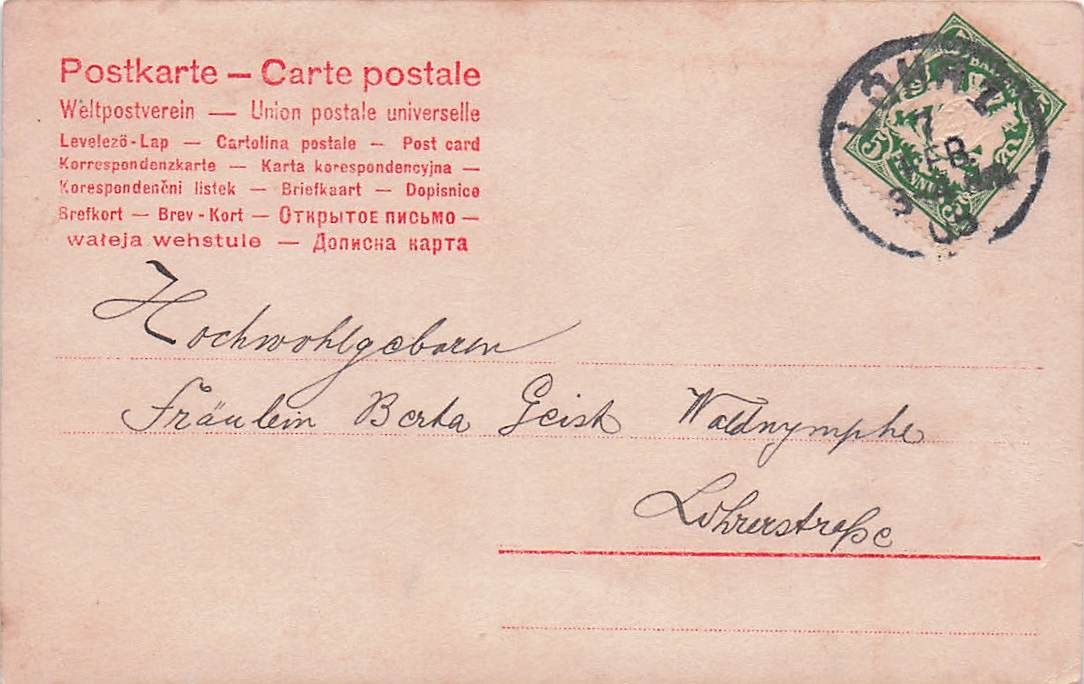 Postkarte — Carte postale
Weltpostverein — Union postale universelle
Levelező-Lap — Cartolina postale — Post card
Korrespondenzkarte — Karta korespondencyjna —
Korespondenčni listek — Briefkaart — Dopisnice
Brefkort — Brev-Kort — Открытое письмо —
wałeja wehstule — Дописна карта
LOHR
7
FEB
03
Hochwohlgeboren
Fräulein Berta Geist Waldnymphe
Lohrerstraße